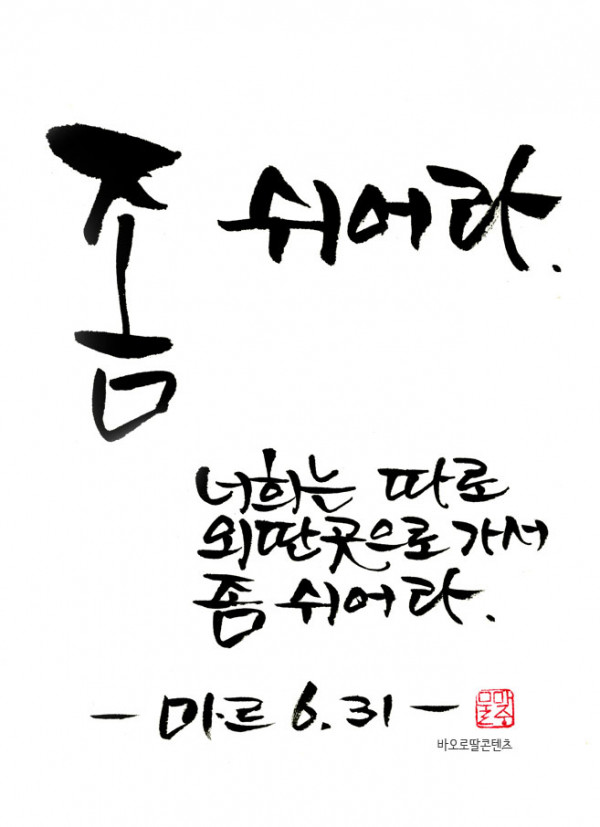 좀 쉬어라.
너희는 따로
외딴곳으로 가서
좀 쉬어라.
- 마르 6.31 -
바오로딸콘텐츠